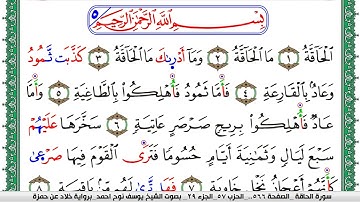 بِسْمِ اللَّهِ الرَّحْمَٰنِ الرَّحِيمِ ٥
الْحَاقَّةُ ١ مَا الْحَاقَّةُ ٢ وَمَا أَدْرِىٰكَ مَا الْحَاقَّةُ ٣ كَذَّبَت ثَّمُودُ
وَعَادٌ بِالْقَارِعَةِ ٤ فَأَمَّا ثَمُودُ فَأُهْلِكُوا بِالطَّاغِيَةِ ٥ وَأَمَّا
عَادٌ فَأُهْلِكُوا بِرِيحٍ صَرْصَرٍ عَاتِيَةٍ ٦ سَخَّرَهَا عَلَيْهُمْ
سَبْعَ لَيَالٍ وَثَمَٰنِيَةَ أَيَّامٍ حُسُومًا فَتَرَى الْقَوْمَ فِيهَا صَرْعِىٰ
كَأَنَّهُمْ أَعْجَازُ نَخْلٍ خَاوِيَةٍ ٧ فَهَل تَّرِىٰ لَهُم مِّن بَاقِيَةٍ ٨
سورة الحاقة . الصفحة ٥٦٦ . الحزب ٥٧ الجزء ٢٩ . بصوت الشيخ يوسف نوح أحمد برواية خلاد عن حمزة